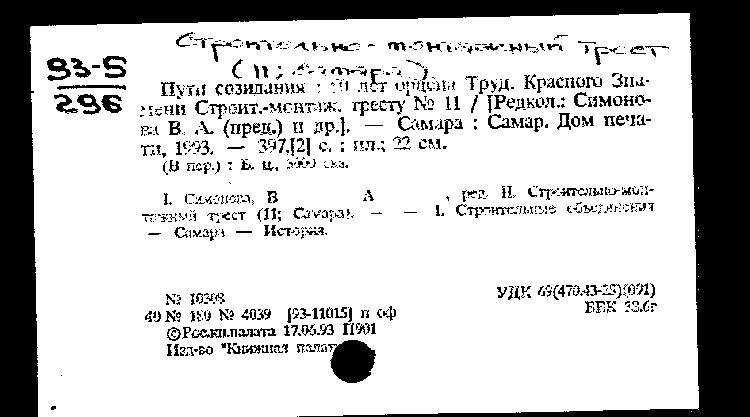 Строительно-монтажный трест
93-5 (11; Самара)
296
Пути созидания : лет ордена Труд. Красного Зна-
мени Строит.-монтаж. тресту № 11 / [Редкол.: Симоно-
ва В. А. (пред.) и др.]. — Самара : Самар. Дом печа-
ти, 1993. — 397,[2] с. : ил.; 22 см.
(В пер.) : Б. ц., экз.
I. Симонова, В А , ред. II. Строительно-мон-
тажный трест (11; Самара). — — 1. Строительные объединения
— Самара — История.
№ 10308
УДК 69(470.43-25)(091)
40 № 180 № 4039 [93-11015] п оф
ББК
© Рос.кн.палата 17.06.93 П901
Изд-во "Книжная палат